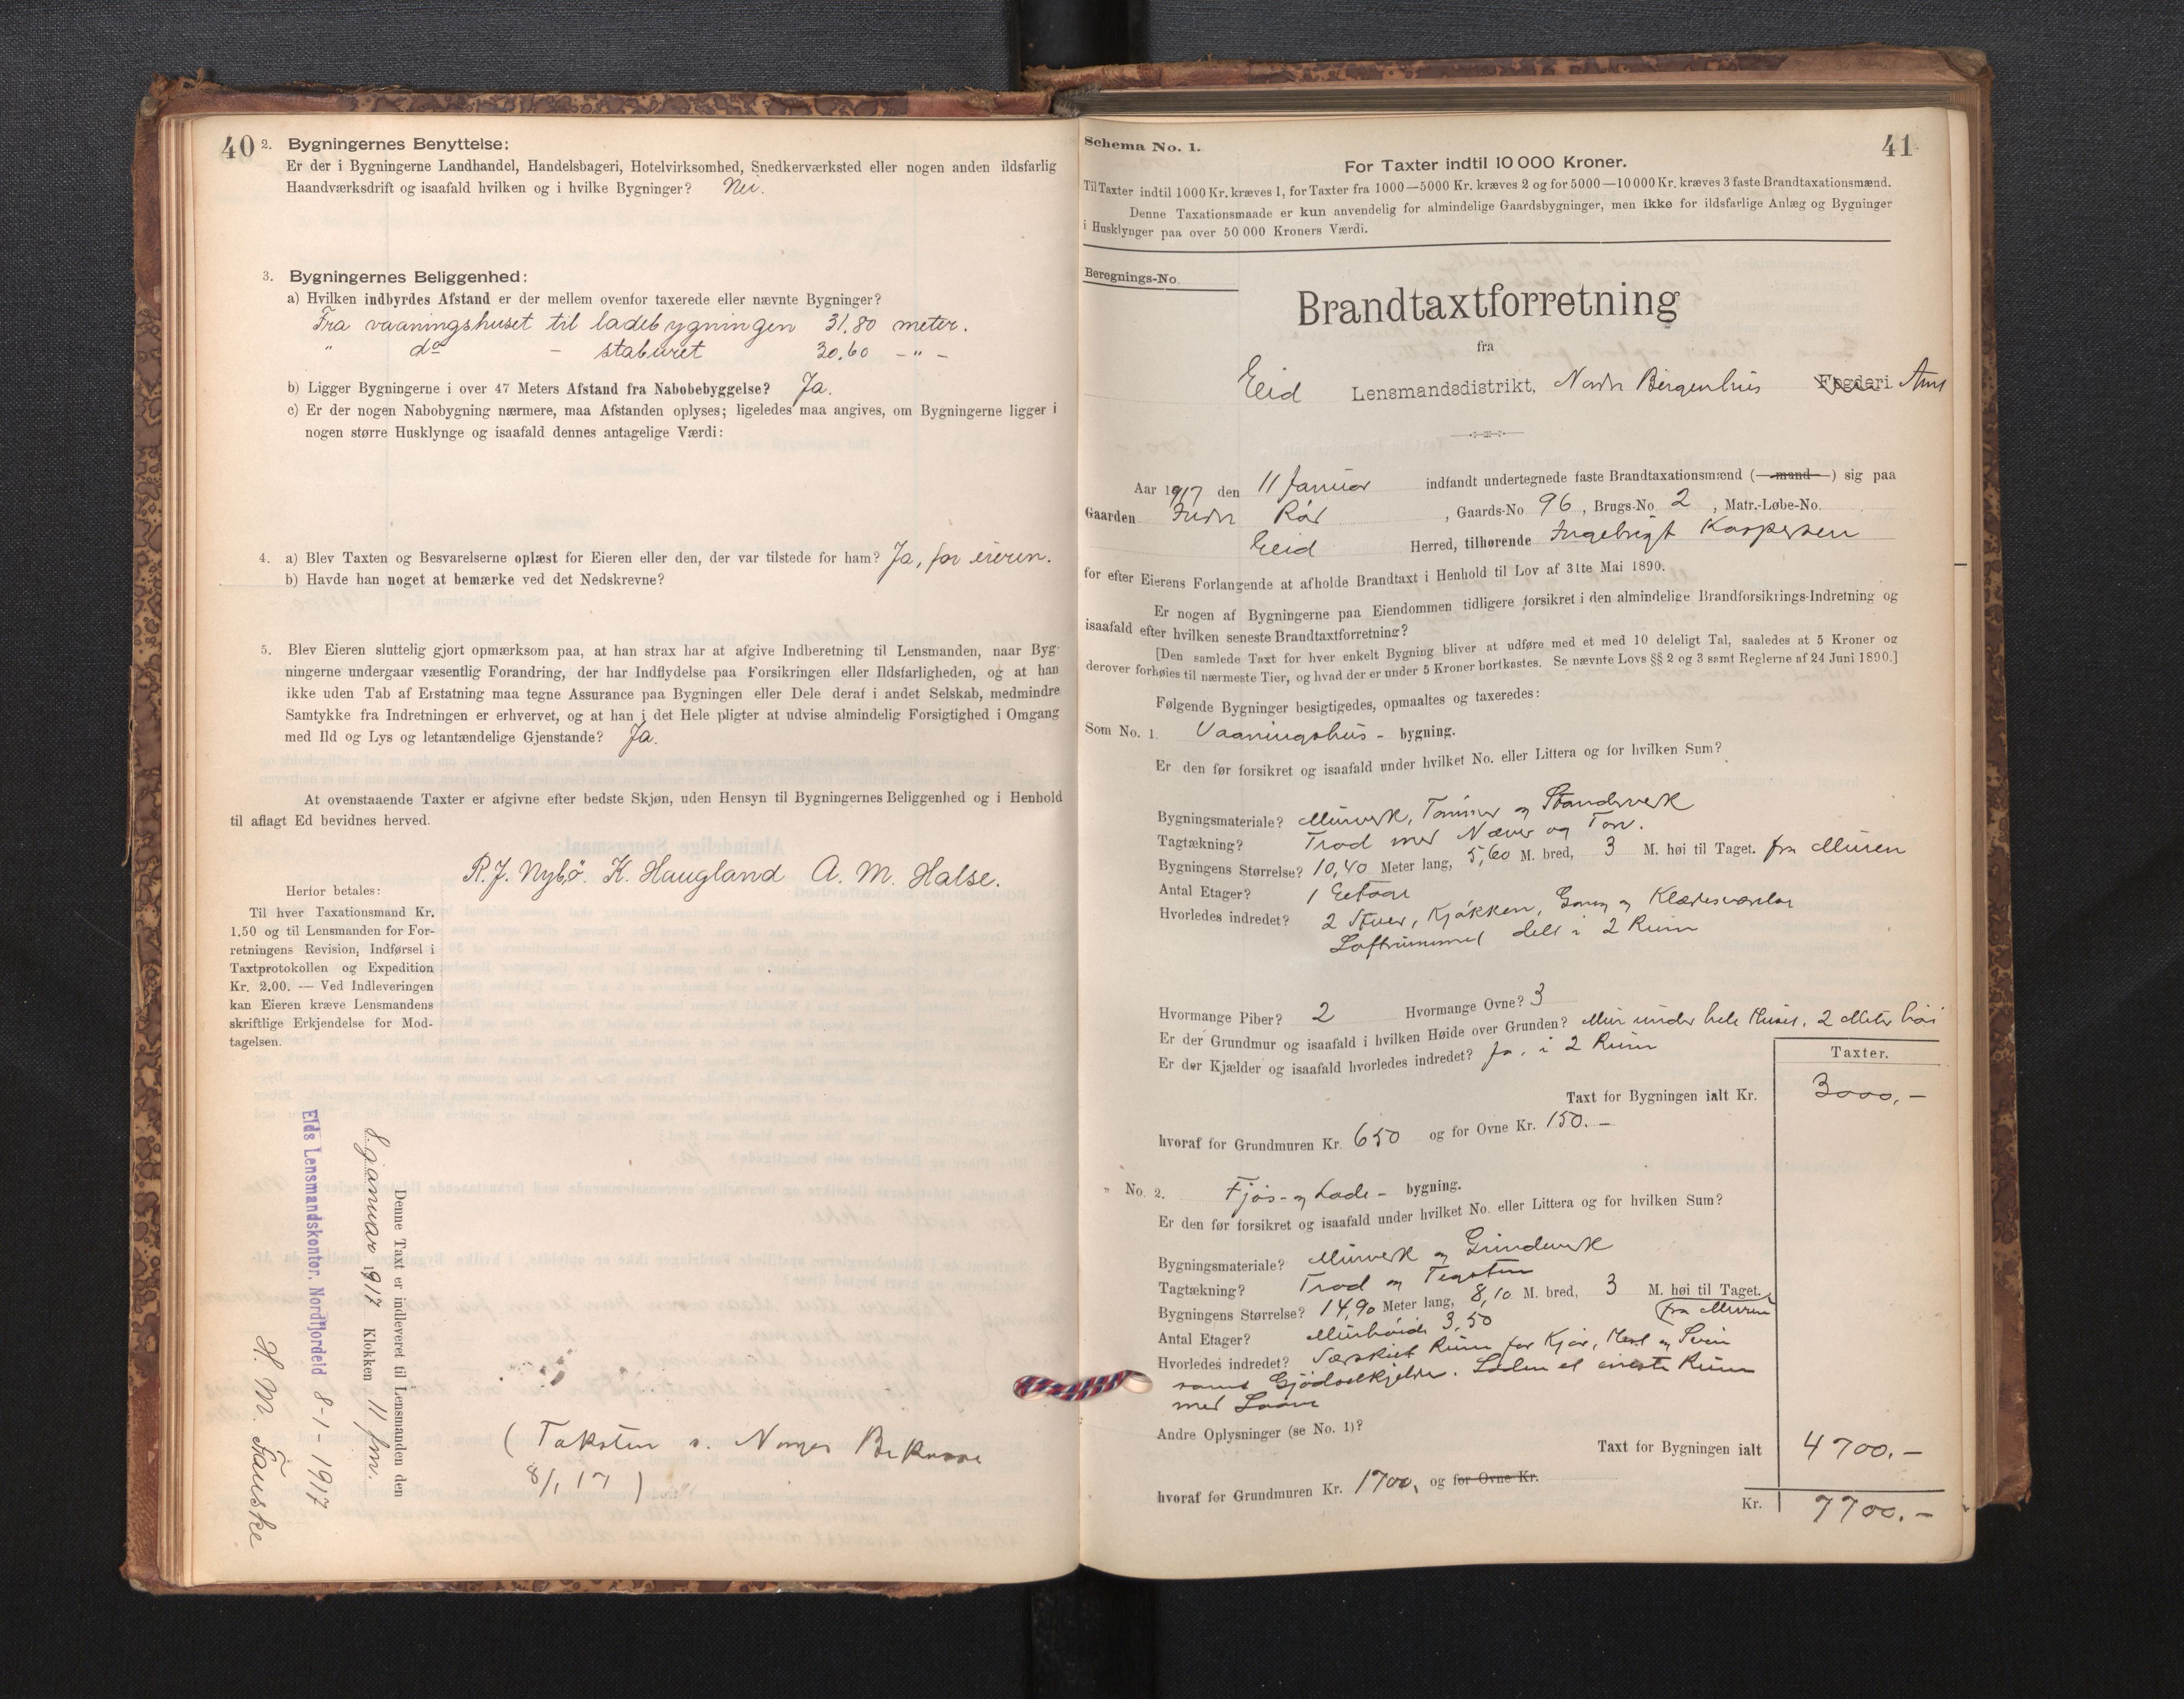 40
2. Bygningernes Benyttelse:
Er der i Bygningerne Landhandel, Handelsbageri, Hotelvirksomhed, Snedkerværksted eller nogen anden ildsfarlig
Haandværksdrift og isaafald hvilken og i hvilke Bygninger? Nei.
3. Bygningernes Beliggenhed:
a) Hvilken indbyrdes Afstand er der mellem ovenfor taxerede eller nævnte Bygninger?
Fra vaaningshuset til ladebygningen 31.80 meter.
" do - staburet 30.60 - " -
b) Ligger Bygningerne i over 47 Meters Afstand fra Nabobebyggelse? Ja.
c) Er der nogen Nabobygning nærmere, maa Afstanden oplyses; ligeledes maa angives, om Bygningerne ligger i
nogen større Husklynge og isaafald dennes antagelige Værdi:
4. a) Blev Taxten og Besvarelserne oplæst for Eieren eller den, der var tilstede for ham? Ja, for eieren.
b) Havde han noget at bemærke ved det Nedskrevne?
5. Blev Eieren sluttelig gjort opmærksom paa, at han strax har at afgive Indberetning til Lensmanden, naar Byg-
ningerne undergaar væsentlig Forandring, der har Indflydelse paa Forsikringen eller Ildsfarligheden, og at han
ikke uden Tab af Erstatning maa tegne Assurance paa Bygningen eller Dele deraf i andet Selskab, medmindre
Samtykke fra Indretningen er erhvervet, og at han i det Hele pligter at udvise almindelig Forsigtighed i Omgang
med Ild og Lys og letantændelige Gjenstande? Ja.
At ovenstaaende Taxter er afgivne efter bedste Skjøn, uden Hensyn til Bygningernes Beliggenhed og i Henhold
til aflagt Ed bevidnes herved.
R. J. Nybø. K. Haugland A. M. Halse.
Herfor betales:
Til hver Taxationsmand Kr.
1.50 og til Lensmanden for For-
retningens Revision, Indførsel i
Taxtprotokollen og Expedition
Kr. 2.00. — Ved Indleveringen
kan Eieren kræve Lensmandens
skriftlige Erkjendelse for Mod-
tagelsen.
Denne Taxt er indleveret til Lensmanden den
8 januar 1917 Klokken 11 fm.
Eids Lensmandskontor, Nordfjordeid 8-1-1917
H. M. Fauske
(Taksten s. Norges
8/1 17)
41
Schema No. 1.
For Taxter indtil 10 000 Kroner.
Til Taxter indtil 1000 Kr. kræves 1, for Taxter fra 1000—5000 Kr. kræves 2 og for 5000—10000 Kr. kræves 3 faste Brandtaxationsmænd.
Denne Taxationsmaade er kun anvendelig for almindelige Gaardsbygninger, men ikke for ildsfarlige Anlæg og Bygninger
i Husklynger paa over 50 000 Kroners Værdi.
Beregnings-No.
Brandtaxtforretning
fra
Eid Lensmandsdistrikt, Nordre Bergenhus Fogderi Amt
Aar 1917 den 11 Januar indfandt undertegnede faste Brandtaxationsmænd (mand) sig paa
Gaarden Indre Rød, Gaards-No 96, Brugs-No 2, Matr.-Løbe-No.
Eid Herred, tilhørende Ingebrigt Kaspersen
for efter Eierens Forlangende at afholde Brandtaxt i Henhold til Lov af 31te Mai 1890.
Er nogen af Bygningerne paa Eiendommen tidligere forsikret i den almindelige Brandforsikrings-Indretning og
isaafald efter hvilken seneste Brandtaxtforretning?
[Den samlede Taxt for hver enkelt Bygning bliver at udføre med et med 10 deleligt Tal, saaledes at 5 Kroner og
derover forhøies til nærmeste Tier, og hvad der er under 5 Kroner bortkastes. Se nævnte Lovs §§ 2 og 3 samt Reglerne af 24 Juni 1890.]
Følgende Bygninger besigtigedes, opmaaltes og taxeredes:
Som No. 1. Vaaningshus- bygning.
Er den før forsikret og isaafald under hvilket No. eller Littera og for hvilken Sum?
Bygningsmateriale? Murverk, Tømmer og Standverk
Tagtækning? Trod med Næver og Torv.
Bygningens Størrelse? 10,40 Meter lang, 5,60 M. bred, 3 M. høi til Taget. fra Muren
Antal Etager? 1 Eetage
Hvorledes indredet? 2 Stuer, Kjøkken, Gang og Klædesværelse
Loftrummet delt i 2 Rum
Hvormange Piber? 2 Hvormange Ovne? 3
Er der Grundmur og isaafald i hvilken Høide over Grunden? Mur under hele Huset, 2 Meter høi
Er der Kjælder og isaafald hvorledes indredet? Ja, i 2 Rum
Taxter.
Taxt for Bygningen ialt Kr. 3000,-
hvoraf for Grundmuren Kr. 650 og for Ovne Kr. 150.-
" No. 2. Fjøs- og Lade- bygning.
Er den før forsikret og isaafald under hvilket No. eller Littera og for hvilken Sum?
Bygningsmateriale? Murverk og Grindverk
Tagtækning? Trod og Tegsten
Bygningens Størrelse? 14,90 Meter lang, 8,10 M. bred, 3 M. høi til Taget.
fra Muren
Antal Etager? Murhøide 3,50
Hvorledes indredet? Særskilt Rum for Kjør, Hest og Svin
samt Gjødselkjelder. Laden et eneste Rum
med Laave
Andre Oplysninger (se No. 1)?
Taxt for Bygningen ialt 4700.-
hvoraf for Grundmuren Kr. 1700, og for Ovne Kr.
Kr. 7700.-